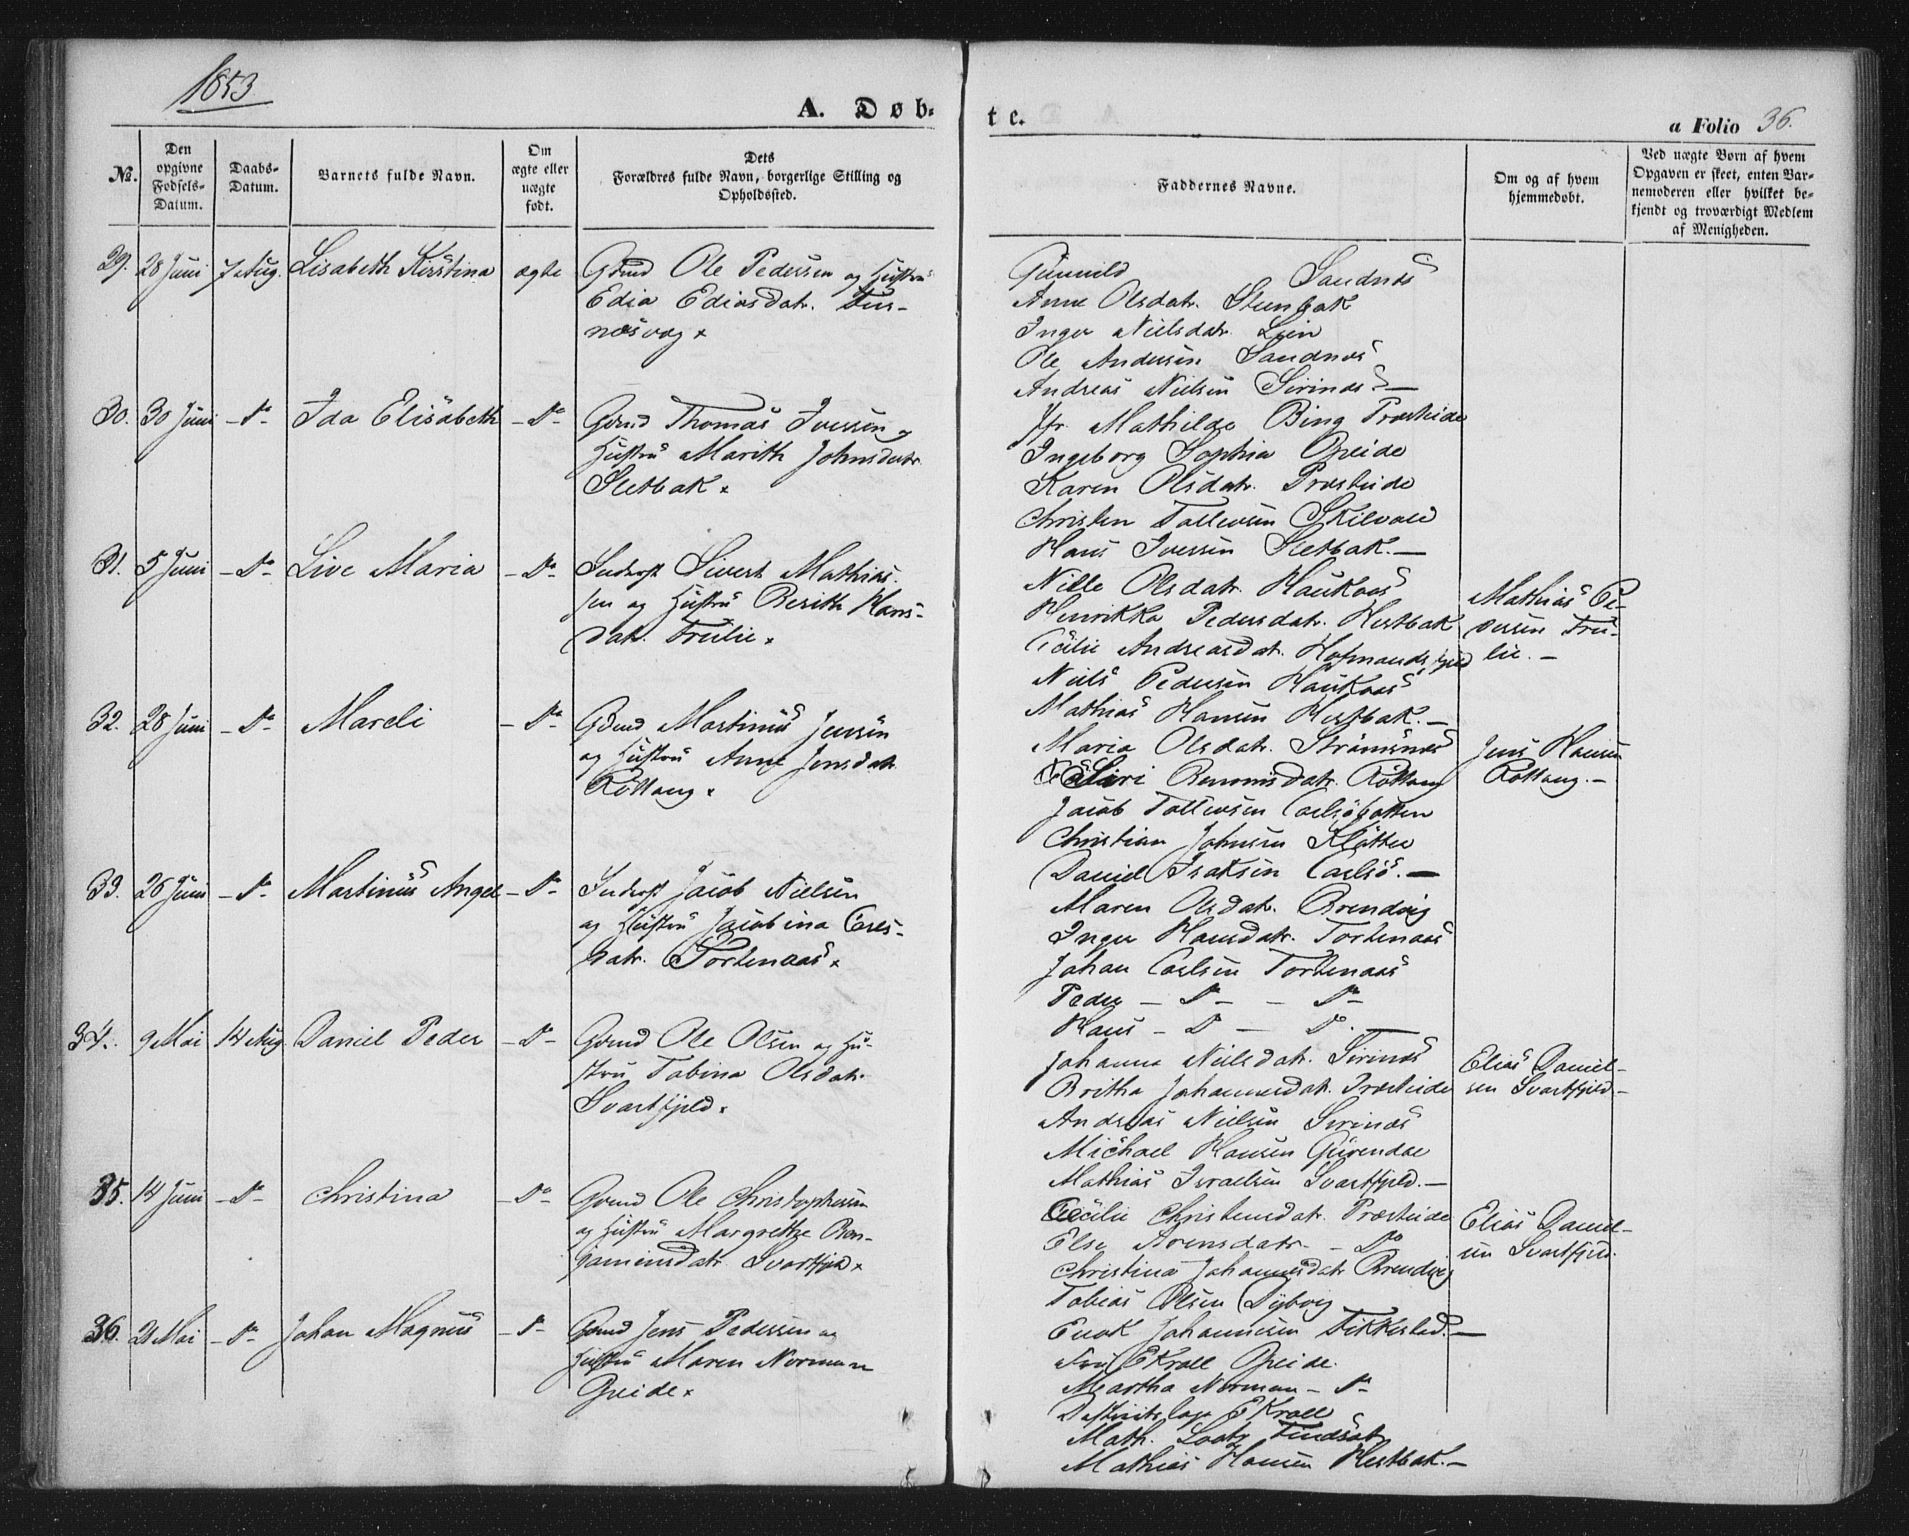 1853
A. Døb-
te.
a Folio 36.
No.
Den opgivne Fødsels-Datum.
Daabs-Datum.
Barnets fulde Navn.
Om ægte eller uægte født.
Dets Forældres fulde Navn, borgerlige Stilling og Opholdssted.
Faddernes Navne.
Om og af hvem hjemmedøbt.
Ved uægte Børn af hvem Opgaven er skeet, enten Barnemoderen eller hvilket bekjendt og troværdigt Medlem af Menigheden.
29. 28 Juni 7 Aug. Lisabeth Kirstina ægte Gdmd Ole Pedersen og Hustru
Edia Ediasdatr.
Gunnild Sandnæs
Anne Olsdatr. Stenbak
Inger Nielsdatr. Lien
Ole Andersen Sandnæs
Andreas Nielsen Sirinæs —
30. 30 Juni – Do – Ida Elisabeth – Do – Gdmd Thomas Iversen og
Hustru Marith Johnsdatr.
Sletbak
Jfr. Mathilde Bing Præsteide
Ingeborg Sophia Opeide
Karen Olsdatr. Præsteide
Christen Tollevsen Skilvold
Hans Iversen Sletbak. —
31. 5 Juni – Do – Live Maria – Do – Inderst Sivert Mathias-
sen og Hustru Berith Hans-
datr. Frulie
Nille Olsdatr. Haukaas
Henrikka Pedersdatr. Hestbak
Cicilie Andreasdatr. Hofmandsfjeld
Niels Pedersen Haukaas
Mathias Hansen Hestbak. —
Mathias Pe-
dersen Fru-
lie. —
32. 28 Juni – Do – Mareli – Do – Gdmd Martinus Jensen
og Hustru Anne Jensdatr.
Røttang
Maria Olsdatr. Strømsnæs
Siri Rasmusdatr. Røttang
Jacob Tollevsen Carlsøbotten
Christian Johnsen Slåtten
Daniel Isaksen Carlsø. —
Jens Hansen
Røttang. —
33. 26 Juni – Do – Martinus Angel – Do – Inderst Jacob Nielsen
og Hustru Jacobina Ceres-
datr. Tortenaas
Maren Olsdatr. Brendvig
Inger Hansdatr. Tortenaas
Johan Carlsen Tortenaas
Peder – Do – – Do –
Hans – Do – Do. —
34. 9 Mai 14 Aug. Daniel Peder – Do – Gdmd Ole Olsen og Hu-
stru Tobina Olsdatr.
Svartfjeld
Johanna Nielsdatr. Sirinæs
Britha Johannesdatr. Præsteide
Andreas Nielsen Sirinæs
Michael Hansen
Mathias Israelsen Svartfjeld. —
Elias Daniel-
sen Svartfjeld –
35. 14 Juni – Do – Christina – Do – Gdmd Ole Christophersen
og Hustru Margrethe Ben-
jaminsdatr. Svartfjeld
Cicilie Christensdatr. Præsteide
Else Arensdatr. – Do
Christina Johannesdatr. Brendvig
Tobias Olsen Dybvig
Enok Johannesen Fikkestad. —
Elias Daniel-
sen Svartfjeld.
36. 21 Mai – Do – Johan Magnus – Do – Gdmd Jens Pedersen og
Hustru Maren Norman
Opeide
Fru E Kroll Opeide.
Meartha Norman – Do –
Distriktslæge E Kroll
Math. Lootz
Mathias Hansen Hestbak. —